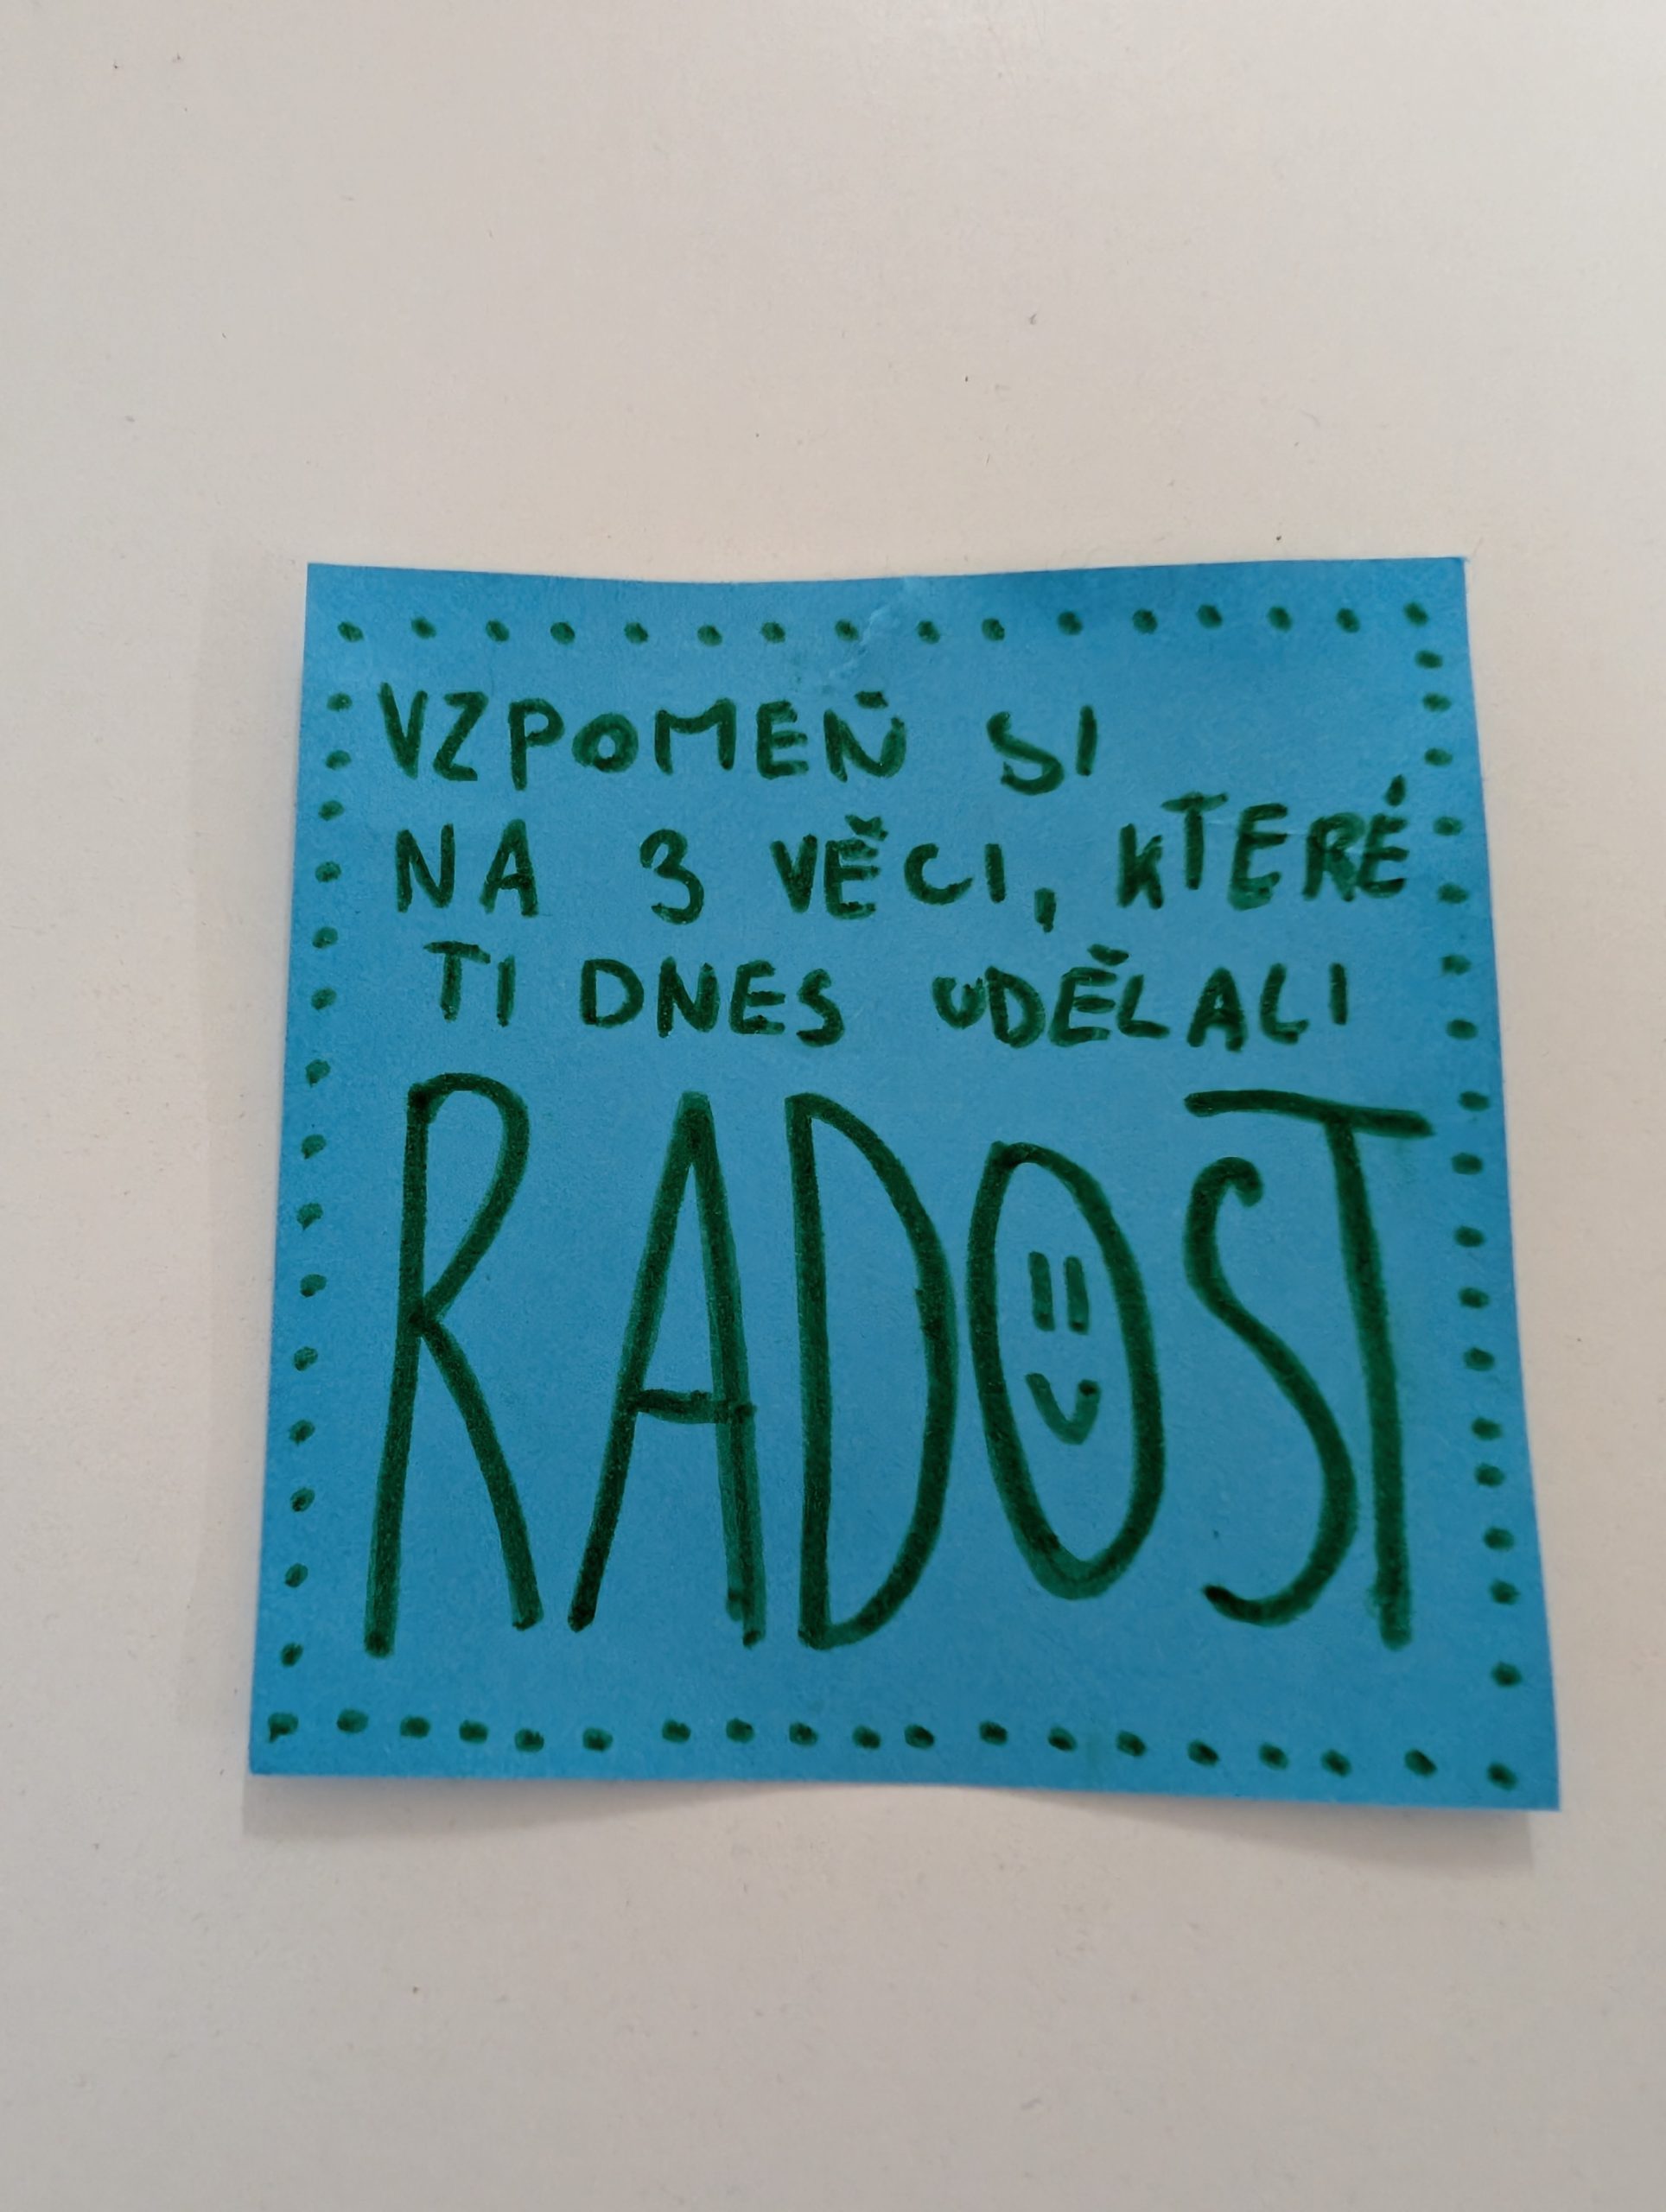 VZPOMEŇ SI
NA 3 VĚCI, KTERÉ
TI DNES UDĚLALI
RADOST